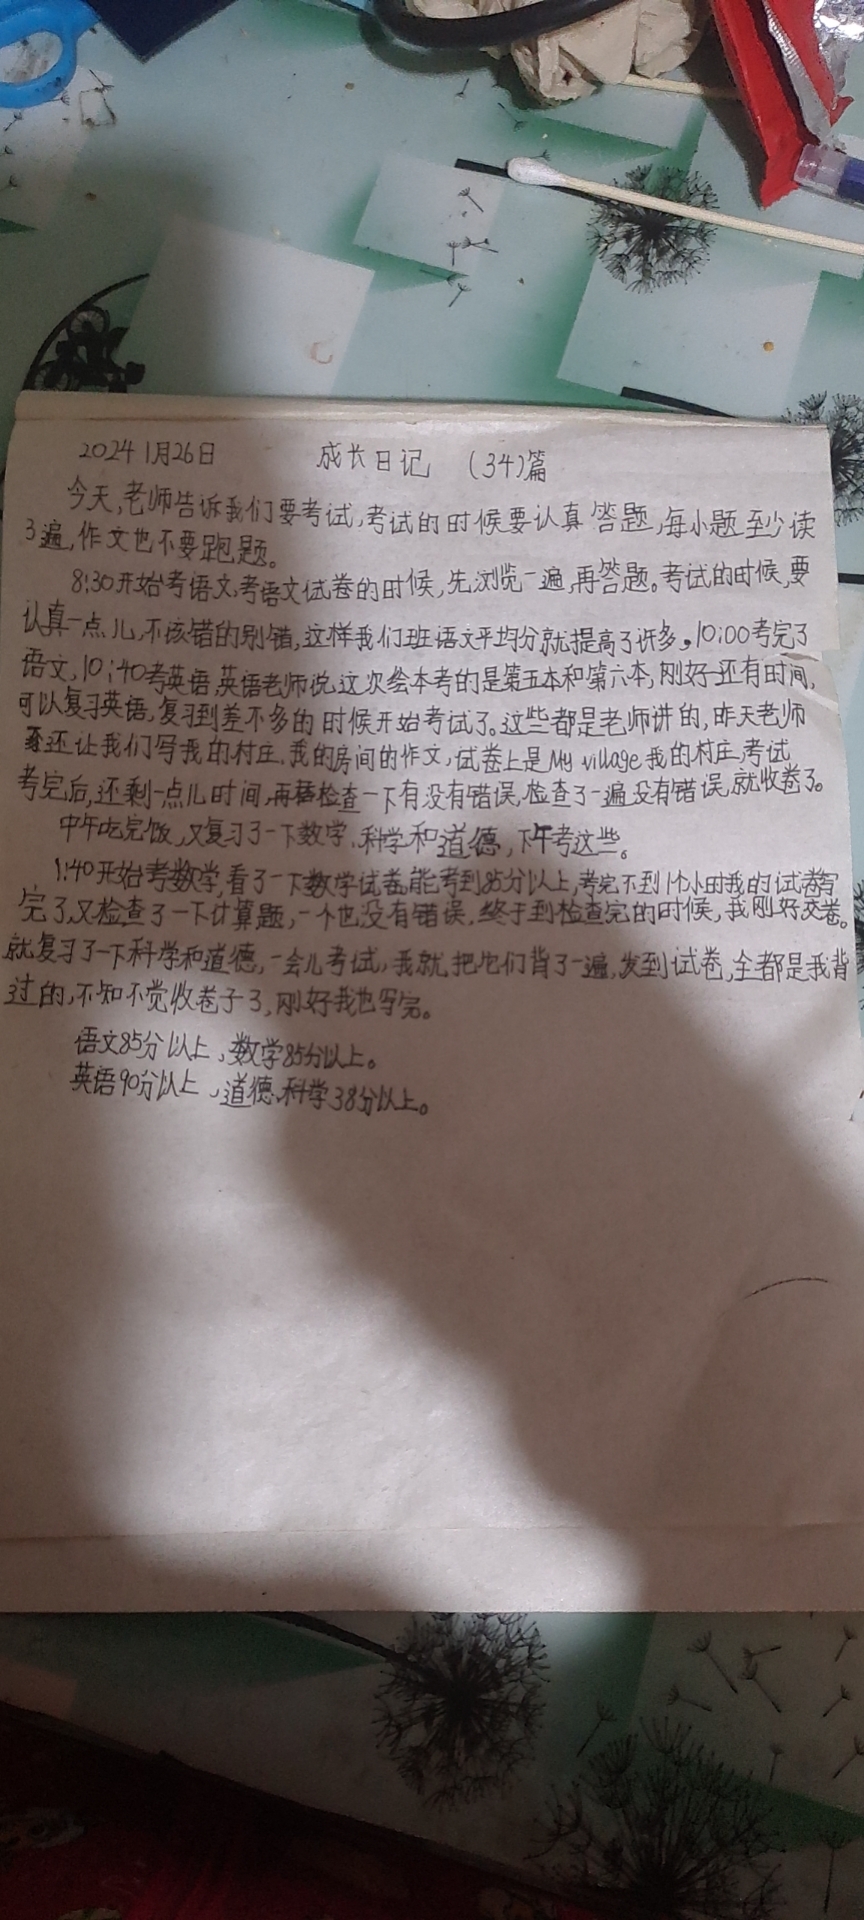 2024 1月26日 成长日记 (34)篇
今天,老师告诉我们要考试,考试的时候要认真答题,每小题至少读
3遍,作文也不要跑题。
8:30开始考语文,考语文试卷的时候,先浏览一遍,再答题。考试的时候,要
认真一点儿,不该错的别错,这样我们班语文平均分就提高了许多。10:00考完了
语文,10:40考英语,英语老师说,这次绘本考的是第五本和第六本,刚好还有时间,
可以复习英语,复习到差不多的时候开始考试了。这些都是老师讲的,昨天老师
还让我们写我的村庄,我的房间的作文,试卷上是My village我的村庄,考试
考完后,还剩一点儿时间,再检查一下有没有错误,检查了一遍没有错误,就收卷了。
中午吃完饭,又复习了一下数学,科学和道德,下午考这些。
1:40开始考数学,看了一下数学试卷,能考到85分以上,考完不到1个小时我的试卷写
完了,又检查了一下计算题,一个也没有错误,终于到检查完的时候,我刚好交卷。
就复习了一下科学和道德,一会儿考试,我就把它们背了一遍,发到试卷,全都是我背
过的,不知不觉收卷子了,刚好我也写完。
语文85分以上,数学85分以上。
英语90分以上,道德,科学38分以上。